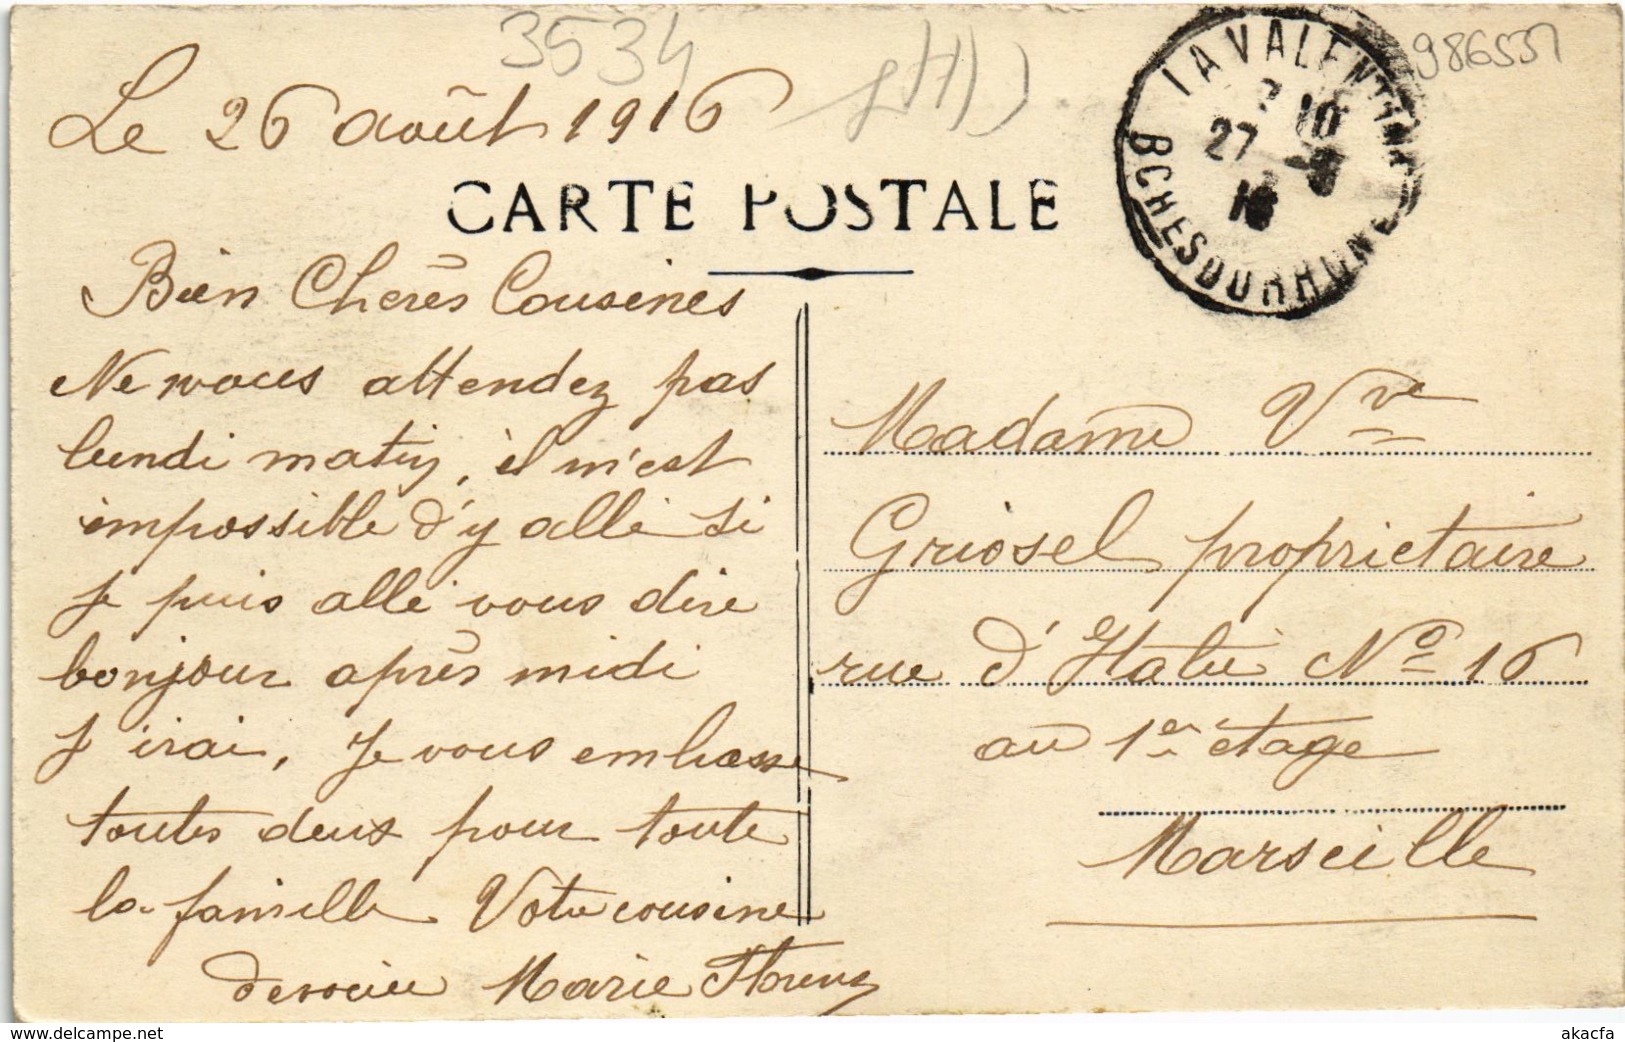 3534
986537
Le 26 août 1916
CARTE POSTALE
LA VALENTINE
27 -8
16
BCHES DU RHONE
Bien Chères Cousines
Ne vous attendez pas
lundi matin, il m'est
impossible d'y allé si
je puis allé vous dire
bonjour après midi
j'irai, Je vous embrasse
toutes deux pour toute
la famille Votre cousine
dévouée Marie Florenz
Madame Vve
Griosel propriétaire
rue d'Italie No 16
au 1er étage
Marseille
akacfa
https://www.delcampe.net